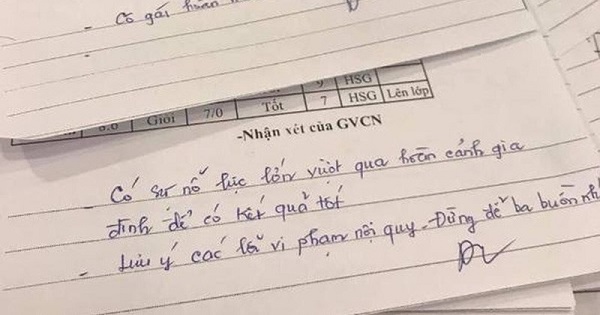 - Cố gắng hoàn
9 HSG
8.0 Giỏi 7/0 Tốt 7 HSG Lên lớp
-Nhận xét của GVCN
- Có sự nỗ lực lớn vượt qua hoàn cảnh gia
đình để có kết quả tốt
- Lưu ý các lỗi vi phạm nội quy. Đừng để ba buồn nh